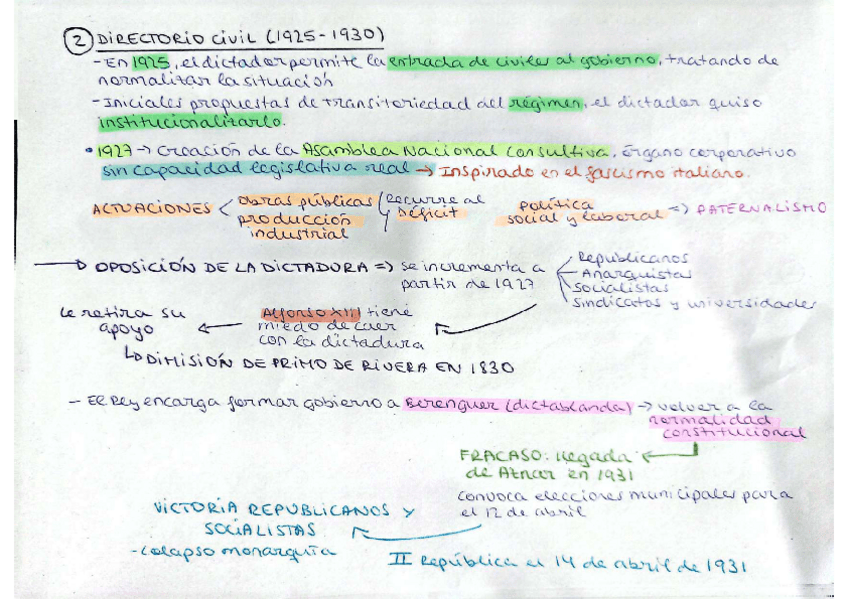 2 DIRECTORIO CIVIL (1925-1930)
-En 1925, el dictador permite la entrada de civiles al gobierno, tratando de
normalizar la situación
-Iniciales propuestas de transitoriedad del régimen, el dictador quiso
institucionalizarlo.
• 1927 → Creación de la Asamblea Nacional Consultiva, órgano corporativo
sin capacidad legislativa real → Inspirado en el fascismo italiano.
ACTUACIONES < obras públicas / Recurre al
y déficit
producción
industrial
política
social y laboral => PATERNALISMO
→ OPOSICIÓN DE LA DICTADURA => se incrementa a
partir de 1927
Republicanos
Anarquistas
socialistas
sindicatos y universidades
Alfonso XIII tiene
miedo de caer
con la dictadura
Le retira su
apoyo
↳ DIMISIÓN DE PRIMO DE RIVERA EN 1830
- El Rey encarga formar gobierno a Berenguer (dictablanda) → volver a la
normalidad
constitucional
FRACASO: llegada
de Aznar en 1931
convoca elecciones municipales para
el 12 de abril
VICTORIA REPUBLICANOS Y
SOCIALISTAS
-colapso monarquía
II República el 14 de abril de 1931